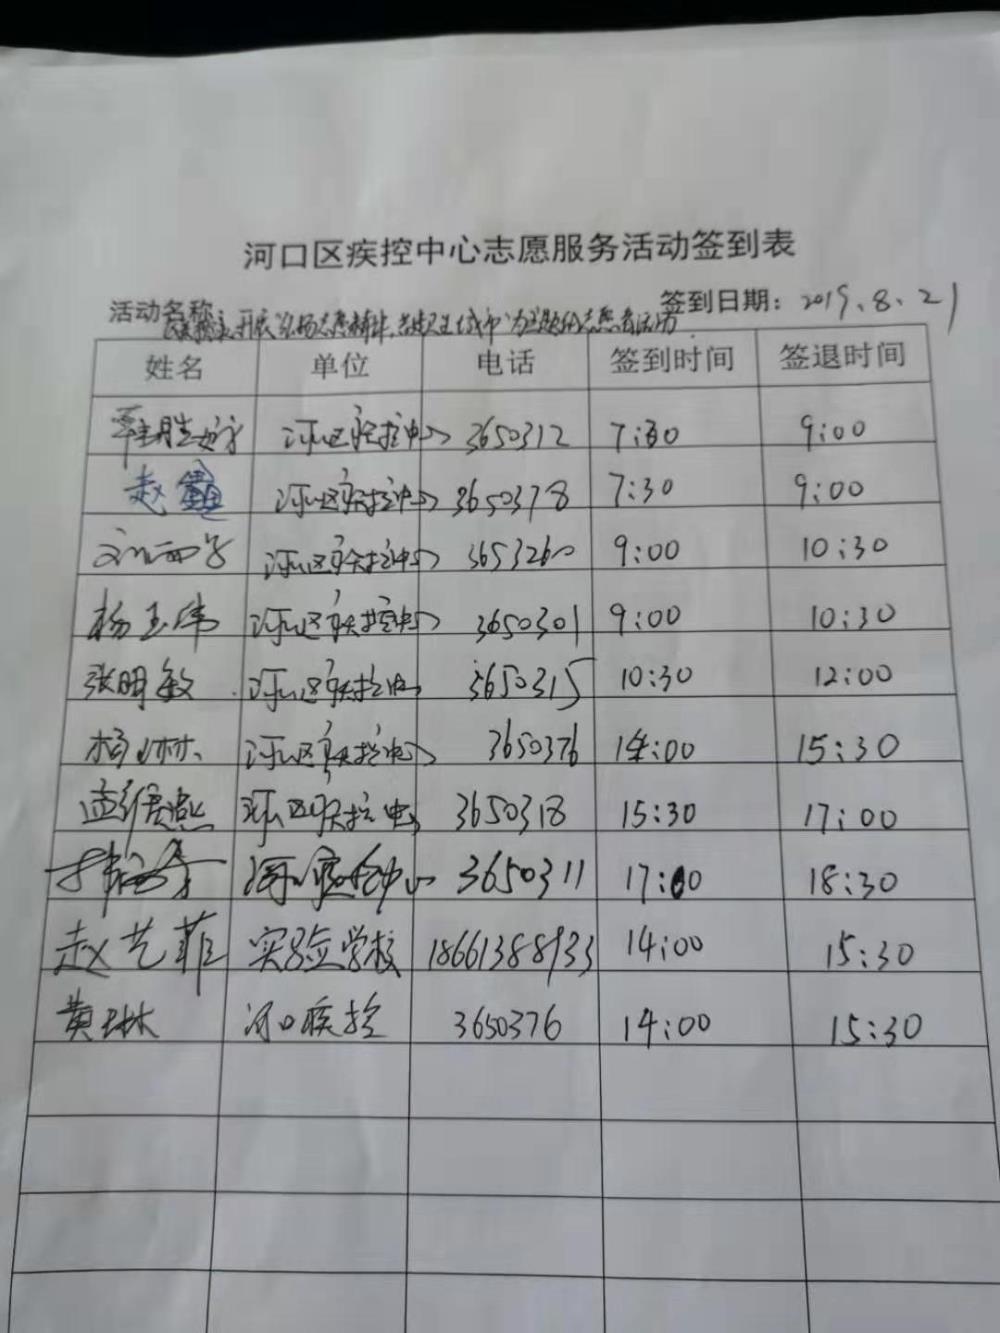 河口区疾控中心志愿服务活动签到表
活动名称 签到日期：2019.8.21
开展"弘扬志愿精神 为主题的志愿者活动
姓名 单位 电话 签到时间 签退时间
河口区疾控中心 3650312 7:30 9:00
赵 河口区疾控中心 3650378 7:30 9:00
河口区疾控中心 3653260 9:00 10:30
杨玉伟 河口区疾控中心 3650301 9:00 10:30
张明敏 河口区疾控中心 3650315 10:30 12:00
杨小林 河口区疾控中心 3650376 14:00 15:30
孟维燕 河口区疾控中心 3650318 15:30 17:00
3650311 17:00 18:30
赵艺菲 实验学校 18661388933 14:00 15:30
黄琳 河口疾控 3650376 14:00 15:30